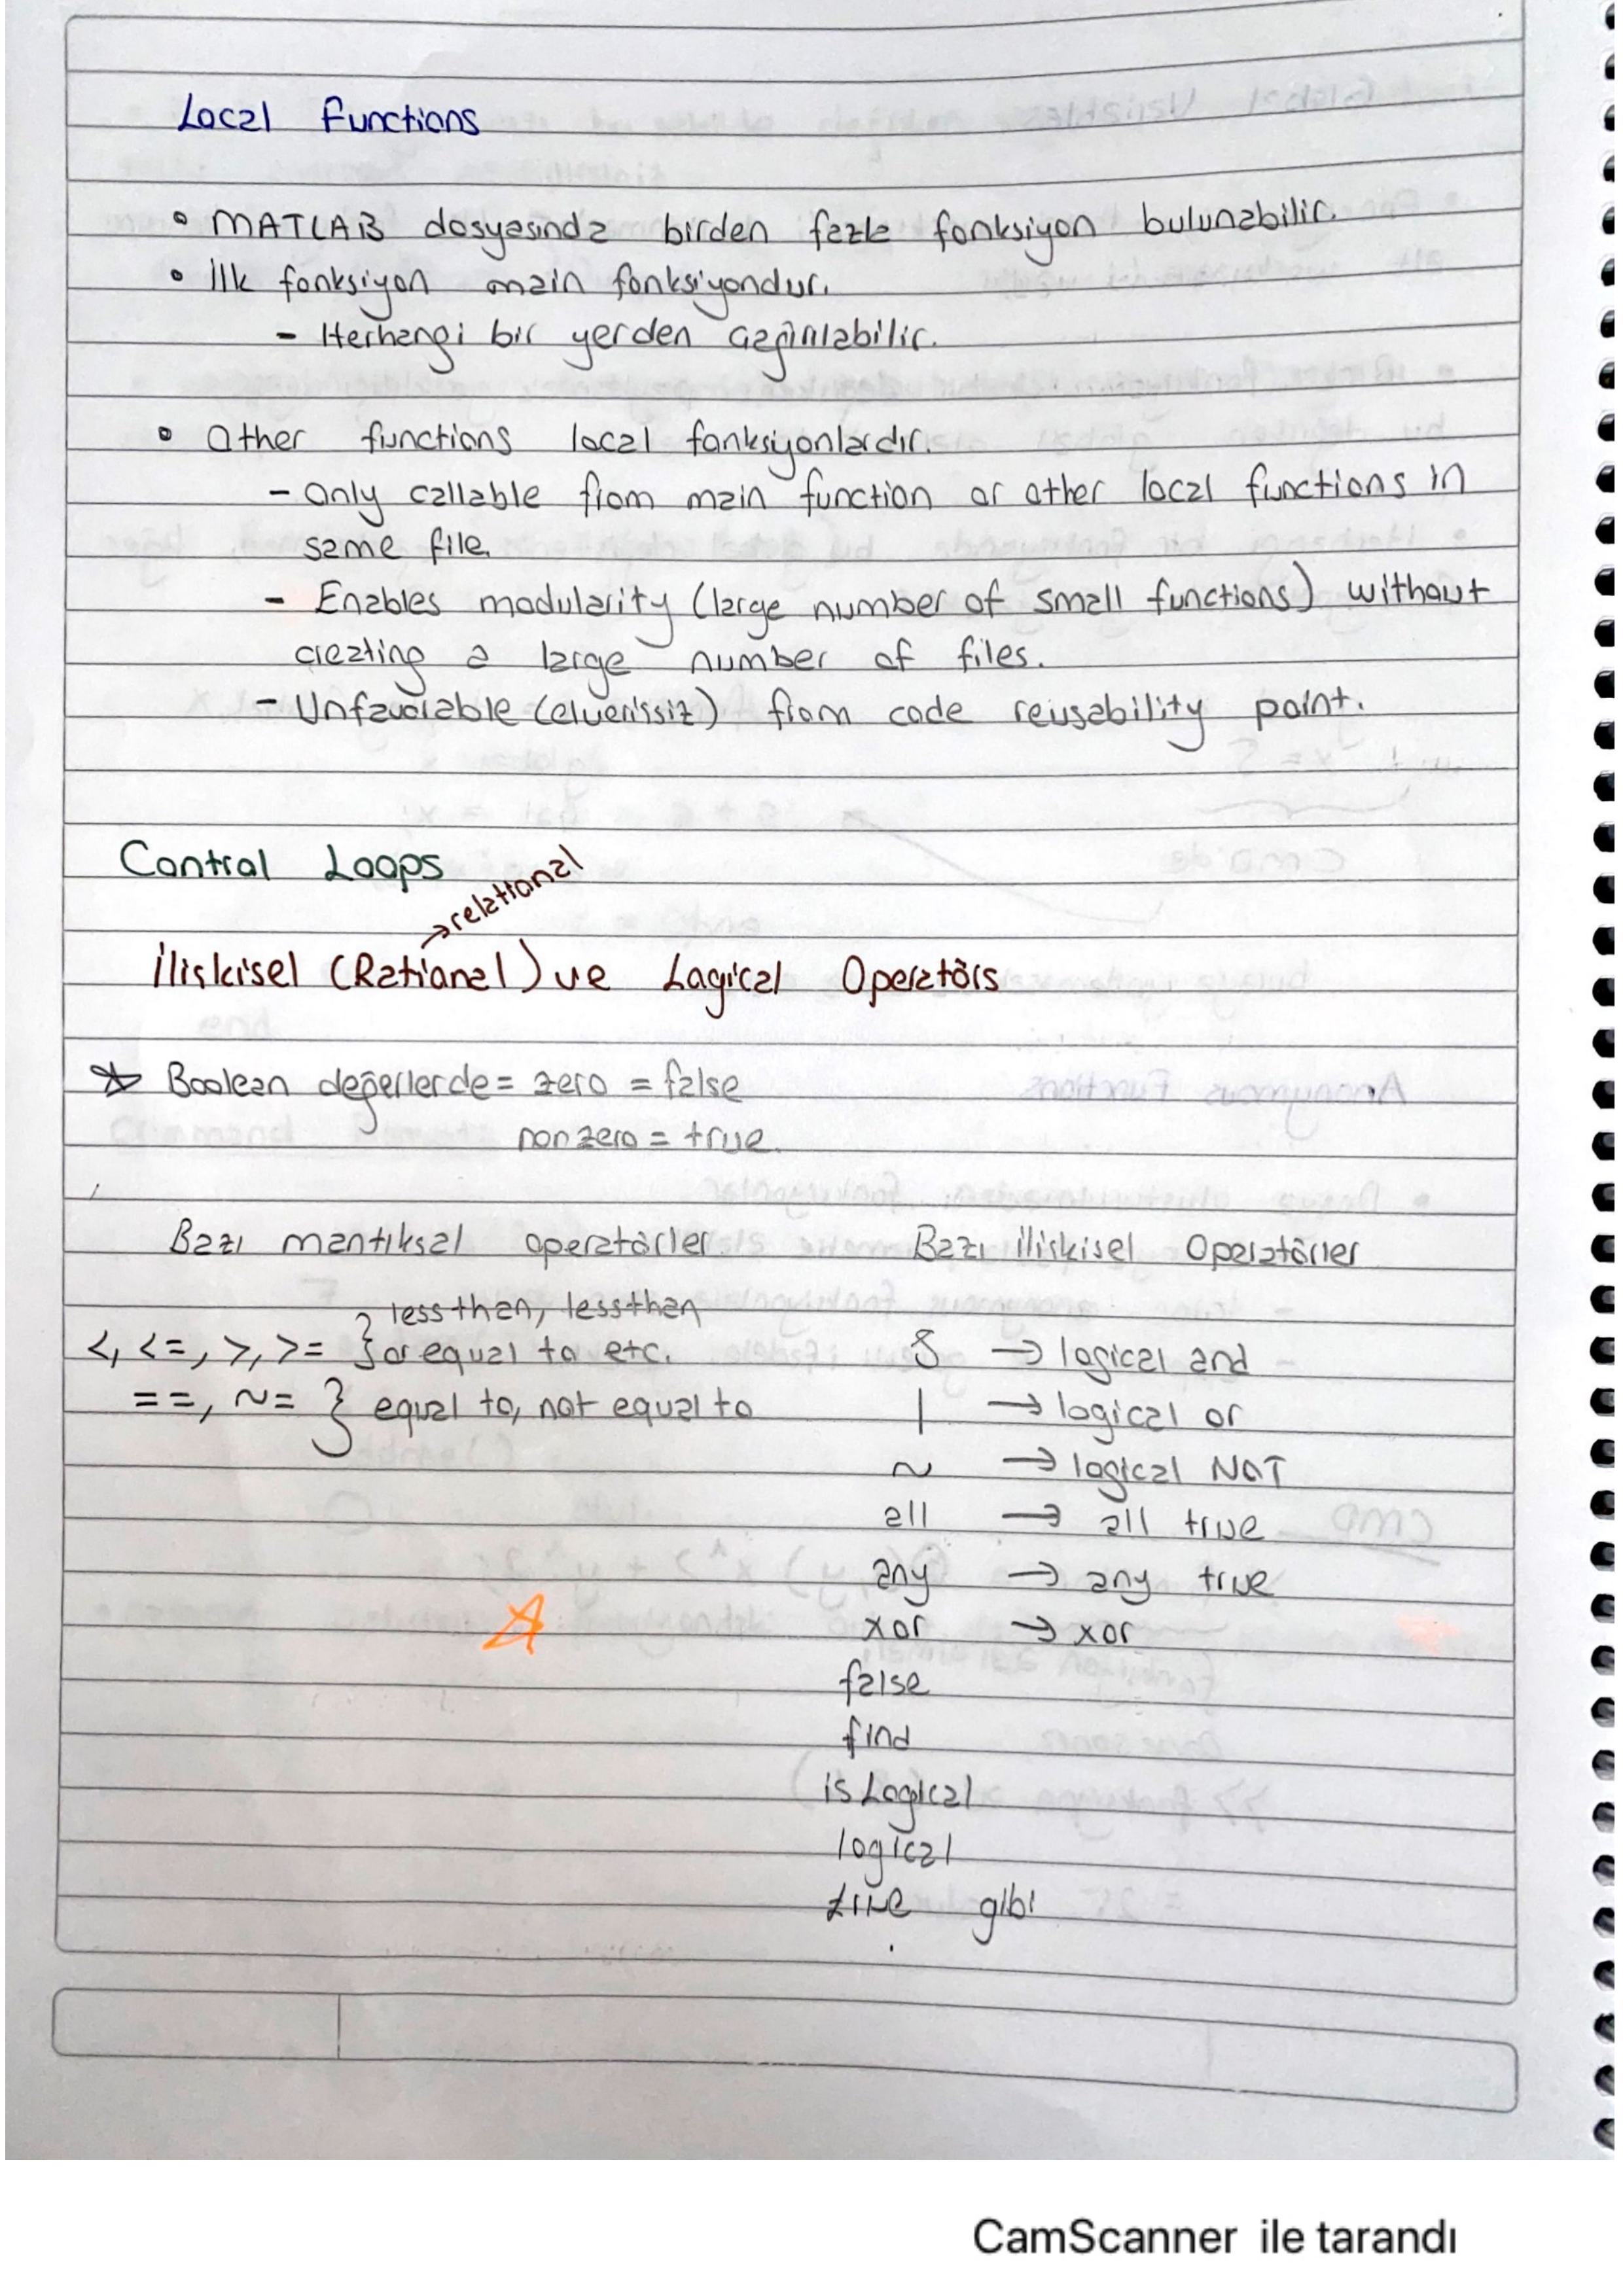 Local Functions
• MATLAB dosyasında birden fazla fonksiyon bulunabilir.
• İlk fonksiyon main fonksiyondur.
- Herhangi bir yerden çağırılabilir.
• Other functions local fonksiyonlardır.
- Only callable from main function or other local functions in
same file.
- Enables modularity (large number of small functions) without
creating a large number of files.
- Unfavorable (elverissiz) from code reusability point.
Control Loops
→ relational
İliskisel (Rational) ve Logical Operatörs
☆ Boolean değerlerde = zero = false
nonzero = true.
Bazı mantıksal operatörler
Bazı iliskisel Operatörler
<, <=, >, >= } less than, less than
or equal to etc.
==, ~= } equal to, not equal to
& → logical and
| → logical or
~ → logical NOT
all → all true
any → any true
xor → xor
false
find
is Logical
logical
true gibi
CamScanner ile tarandı